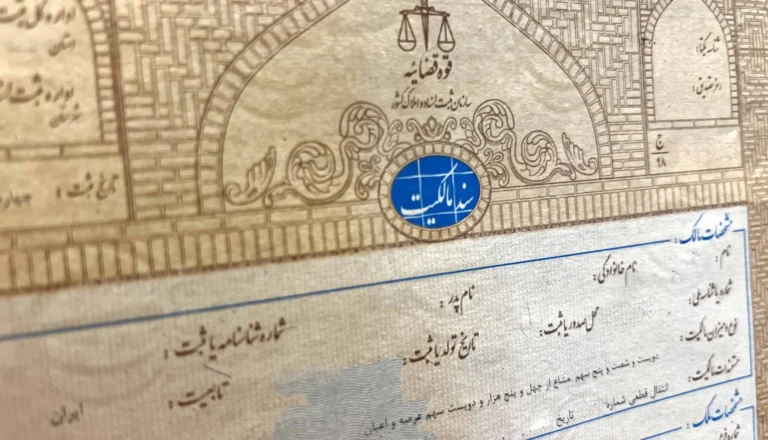 قوه قضائیه
سازمان ثبت اسناد و املاک کشور
شناسه یکتا:
رمز تصدیق:
ج
۹۸
اداره کل ثبت
استان
اداره ثبت
شهرستان
تاریخ ثبت:
سند مالکیت
مشخصات مالک:
نام: نام خانوادگی: نام پدر: شماره شناسنامه یا ثبت:
شماره یا شناسه ملی: محل صدور یا ثبت: تاریخ تولد یا ثبت: تابعیت: ایران
نوع و میزان مالکیت: دویست و شصت و پنج سهم مشاع از چهل و پنج هزار و دویست سهم عرصه و اعیان
مستندات مالکیت: انتقال قطعی شماره تاریخ
مشخصات ملک: